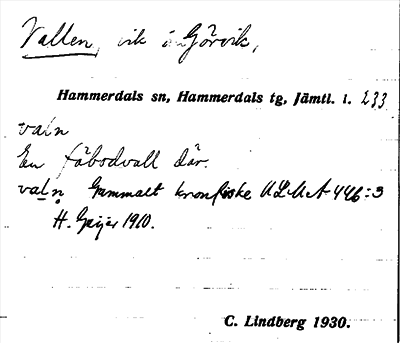 Vallen, vik i Görvik,
Hammerdals sn, Hammerdals tg, Jämtl. l. 233
valn
En fäbodvall där.
valn Gammalt kronfiske ULMA 446:3
H. Geijer 1910.
C. Lindberg 1930.